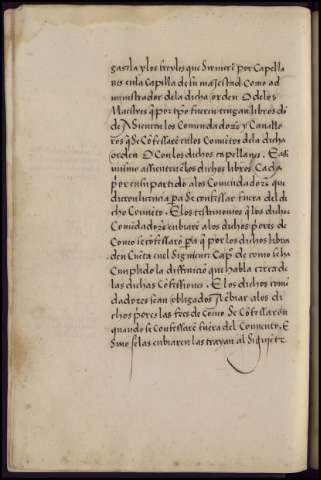 gaçla y los freyles que siruierē por Capella
nes en la capilla de su magestad Como ad
ministrador de la dicha orden O de los
Maestres q̄ por tp̄o fueren tengan libros dō
de Asienten los Comendadores y Caualle
ros q̄ se Cōfessarē en los Conuētos de la dicha
orden O Con los dichos capellanes. E asi
mismo assienten en los dichos libros Cada
por en su partido a los Comendadores que
dieron licencia pa se confessar fuera del di
cho Conuēto. E los testimonios q̄ los dichos
Comēdadores enbiarē a los dichos priores de
Como se cōfessarō pa q̄ por los dichos libros
den Cuēta en el siguiente Capº de como se ha
Cumplido la diffinició que habla cerca de
las dichas Cōfessiones. E los dichos comē
dadores sean obligados A ēbiar a los di
chos priores las fees de Como se Cōfessarōn
quando se confessarē fuera del Conuento. E
si no se las enbiaren las trayan al siguiēte